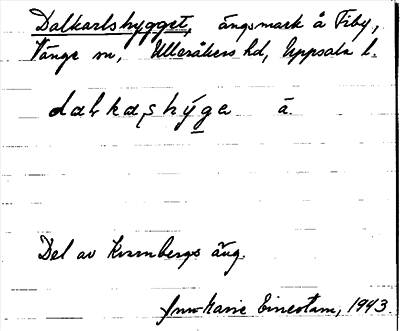 Dalkarlshygget, ängsmark å Fiby,
Vänge sn, Ulleråkers hd, Uppsala l.
dalkashýge ä.
Del av Kvarnbergs äng.
Ann-Marie Einerstam, 1943.